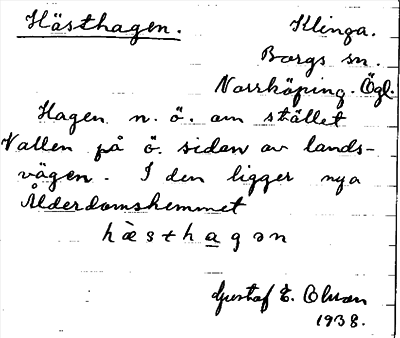 Hästhagen. Klinga.
Borgs sn.
Norrköping. Ögl.
Hagen n. ö. om stället
Vallen på ö. sidan av lands-
vägen. I den ligger nya
Ålderdomshemmet
hὰsthagən
Gustaf E. Olsson
1938.